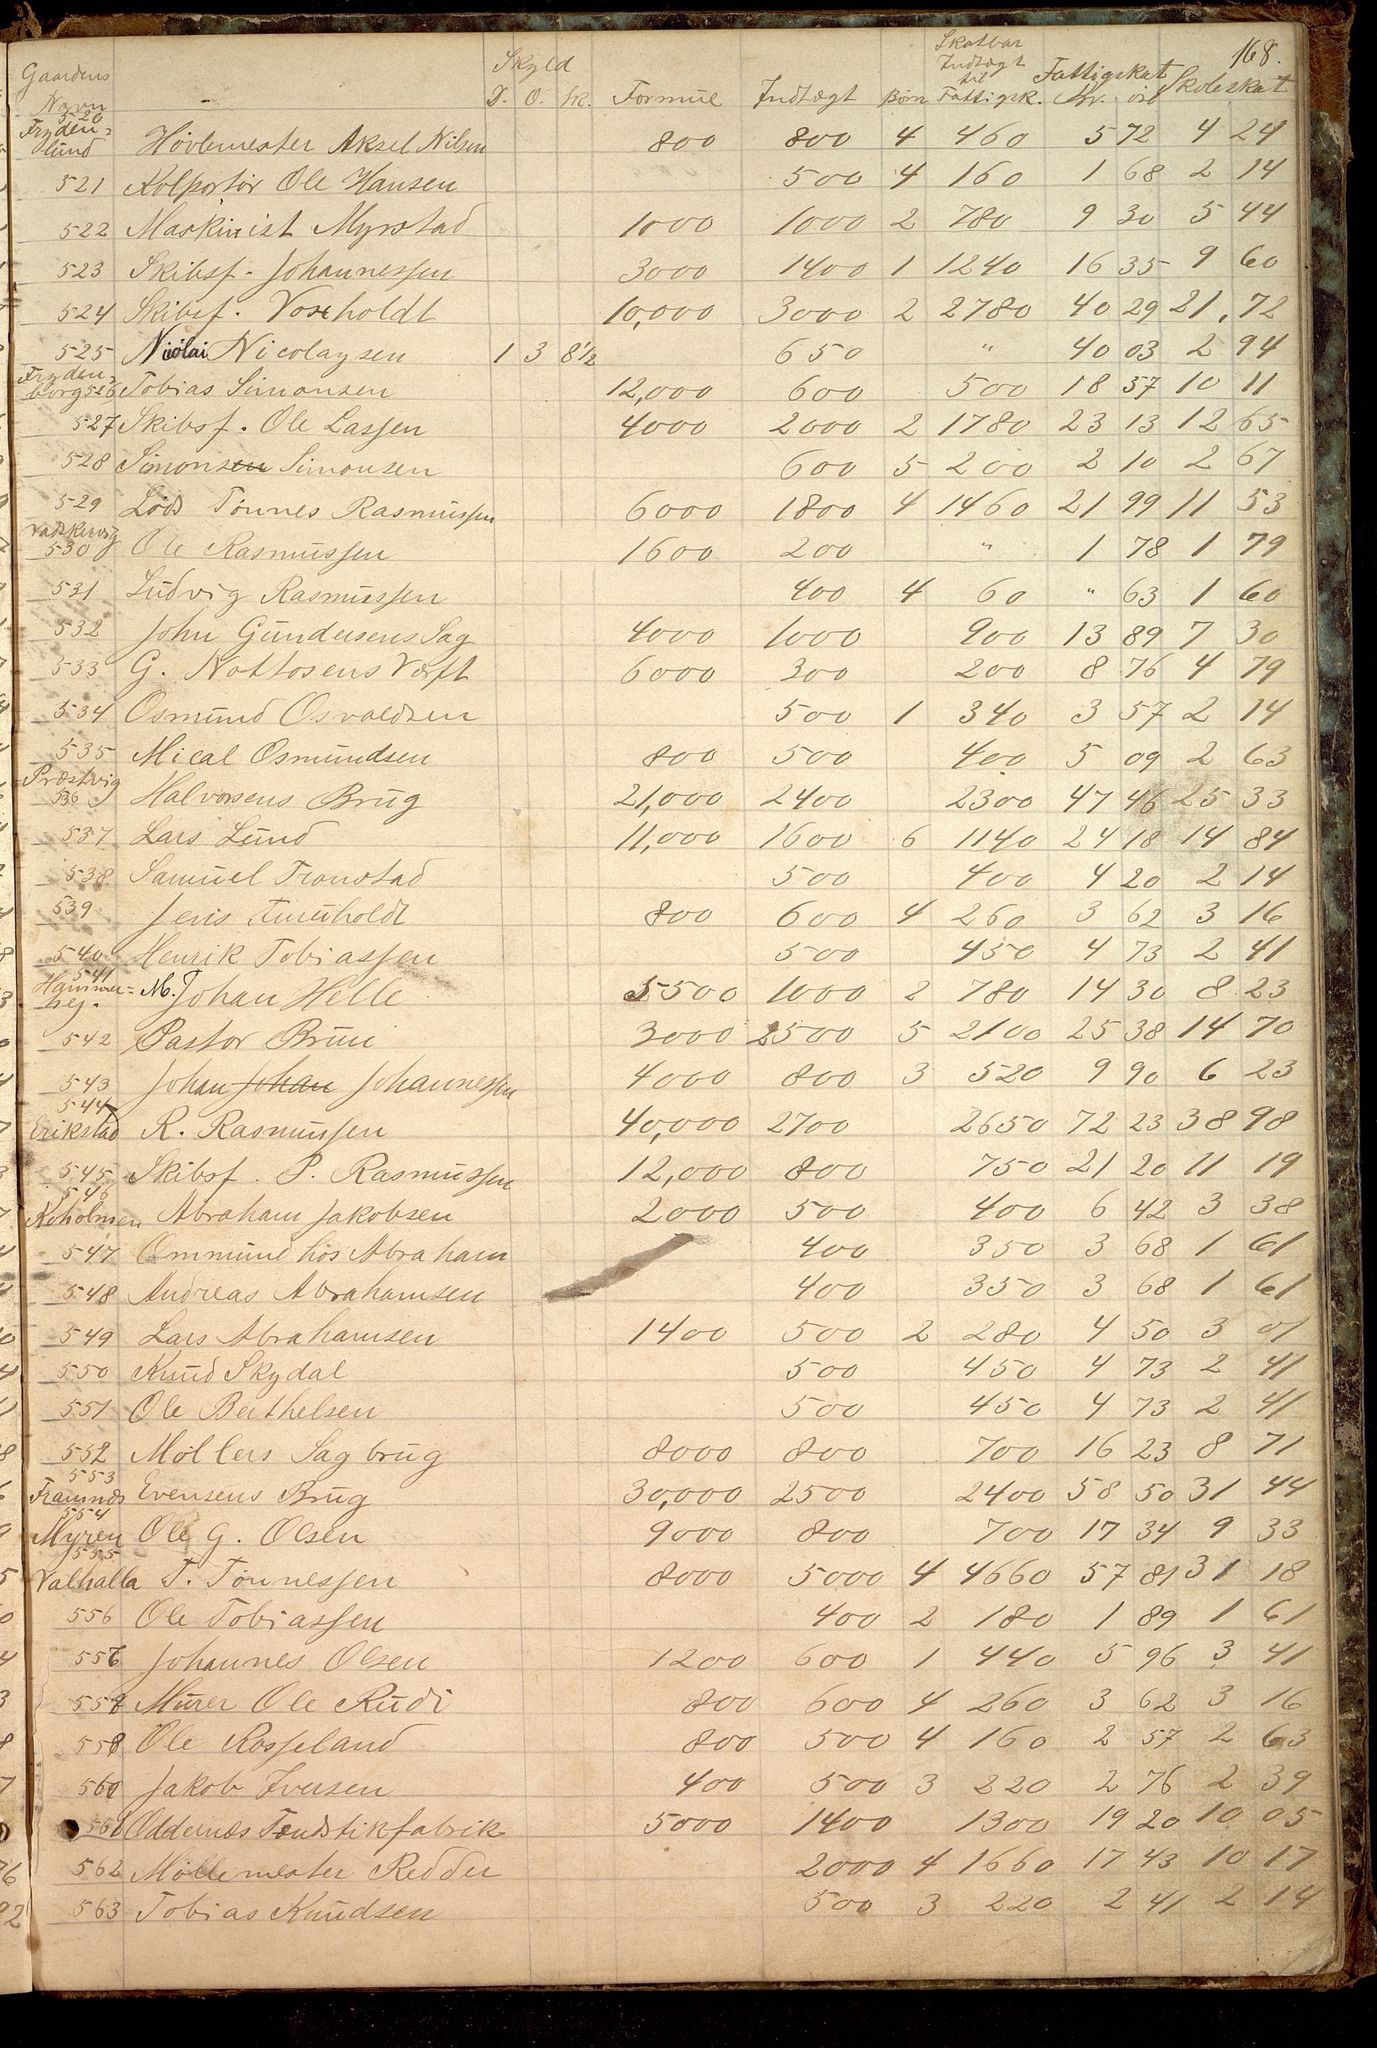 168.
Gaardens Navn Skyld D. O. Sk. Formue Indtægt Børn Skatbar Indtægt til Fattigsk. Fattigskat Kr. öre Skoleskat
520 Frydenlund Hövlemester Aksel Nilsen 800 800 4 460 5 72 4 24
521 Kolportör Ole Hansen 500 4 160 1 68 2 14
522 Maskinist Myrstad 1000 1000 2 780 9 30 5 44
523 Skibsf. Johannessen 3000 1400 1 1240 16 35 9 60
524 Skibsf. Voreholdt 10,000 3000 2 2780 40 29 21,72
525 Nicolai Nicolaysen 1 3 8 1/2 650 " 40 03 2 94
Frydenborg 526 Tobias Simonsen 12,000 600 500 18 57 10 11
527 Skibsf. Ole Lassen 4000 2000 2 1780 23 13 12 65
528 Simonsen Simonsen 600 5 200 2 10 2 67
529 Lods Tönnes Rasmussen 6000 1800 4 1460 21 99 11 53
530 Ole Rasmussen 1600 200 " 1 78 1 79
531 Ludvig Rasmussen 400 4 60 " 63 1 60
532 John Gundersens Sag 4000 1000 900 13 89 7 30
533 G. Nottosens Værft 6000 300 200 8 76 4 79
534 Osmund Osvaldsen 500 1 340 3 57 2 14
535 Mical Osmundsen 800 500 400 5 09 2 63
Præstvig 536 Halvorsens Brug 21,000 2400 2300 47 46 25 33
537 Lars Lund 11,000 1600 6 1140 24 18 14 84
538 Samuel Tronstad 500 400 4 20 2 14
539 Jens Furuholdt 800 600 4 260 3 62 3 16
540 Henrik Tobiassen 500 450 4 73 2 41
541 Hammerhej. M. Johan Helle 5500 1000 2 780 14 30 8 23
542 Pastor Brun 3000 2500 5 2100 25 38 14 70
543 Johan Johan Johannessen 4000 800 3 520 9 90 6 23
544 Erikstad R. Rasmussen 40,000 2700 2650 72 23 38 98
545 Skibsf. P. Rasmussen 12,000 800 750 21 20 11 19
546 Koholmen Abraham Jakobsen 2000 500 400 6 42 3 38
547 Ommund hos Abraham 400 350 3 68 1 61
548 Andreas Abrahamsen 400 350 3 68 1 61
549 Lars Abrahamsen 1400 500 2 280 4 50 3 01
550 Knud Skydal 500 450 4 73 2 41
551 Ole Berthelsen 500 450 4 73 2 41
552 Möllers Sagbrug 8000 800 700 16 23 8 71
553 Framnæs Evensens Brug 30,000 2500 2400 58 50 31 44
554 Myren Ole G. Olsen 9000 800 700 17 34 9 33
555 Valhalla T. Tönnessen 8000 5000 4 4660 57 81 31 18
556 Ole Tobiassen 400 2 180 1 89 1 61
557 Johannes Olsen 1200 600 1 440 5 96 3 41
558 Murer Ole Rudi 800 600 4 260 3 62 3 16
559 Ole Rosseland 800 500 4 160 2 57 2 63
560 Jakob Iversen 400 500 3 220 2 76 2 39
561 Oddernæs Tændstikfabrik 5000 1400 1300 19 20 10 05
562 Möllemester Redder 2000 4 1660 17 43 10 17
563 Tobias Knudsen 500 3 220 2 41 2 14